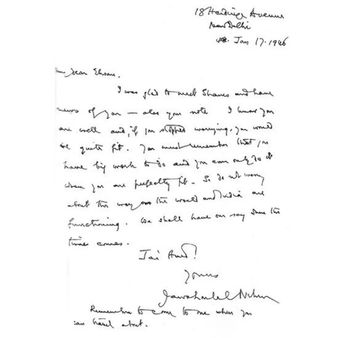 18 Hardinge Avenue
New Delhi
Jan 17. 1946
My dear Ehsan,
I was glad to meet Shanes and have
news of you — also your note. I know you
are well and, if you stopped worrying, you would
be quite fit. You must remember that you
have big work to do and you can only do it
when you are perfectly fit. So do not worry
about the way the world and India are
functioning. We shall have our say when the
time comes.
Jai Hind!
Yours
Jawaharlal Nehru
Remember to come to me when you
can travel about.